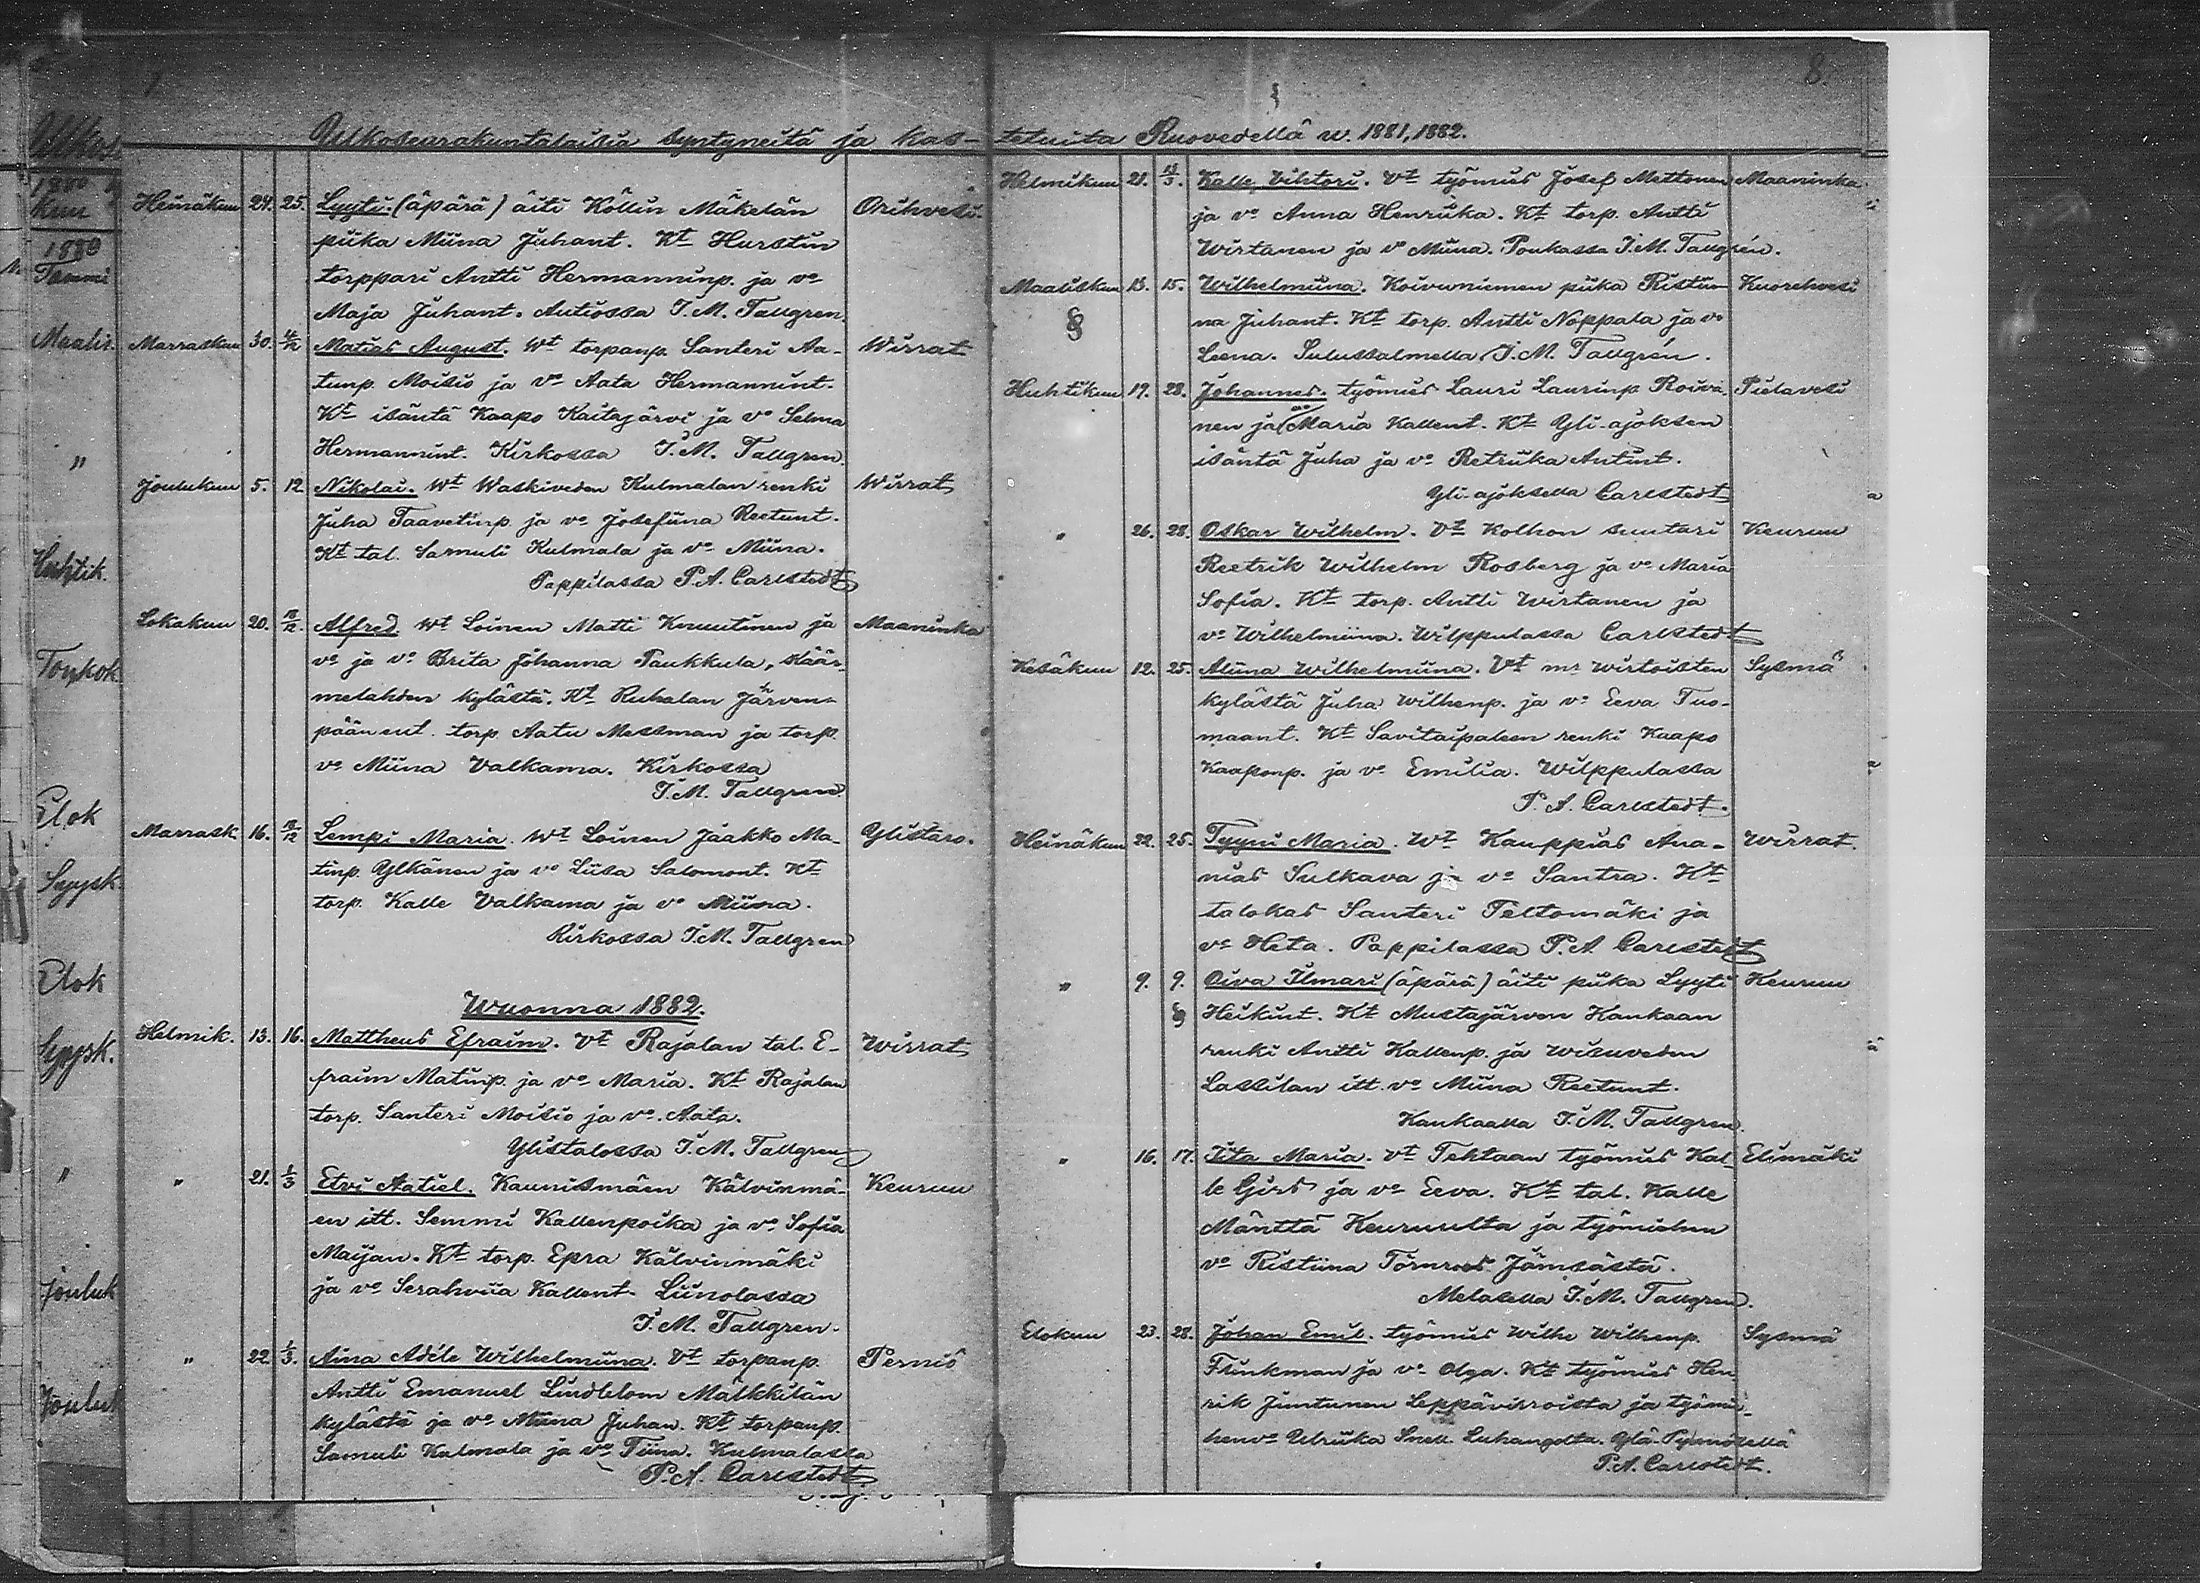 7
8.
Ulkoseurakuntalaisia syntyneitä ja kas-tetuita Ruovedellä w. 1881, 1882.
Heinäkuu 24. 25. Lyyti. (äpärä) äiti Köllin Mäkelän Orihvesi.
piika Miina Juhant. Kt Hurstin
torppari Antti Hermanninp. ja vo
Maja Juhant. Autiossa J. M. Tallgren.
Marraskuu 30. 4/12 Matias August. Wt torpanp. Santeri Aa- Wirrat
tunp. Moisio ja vo Aata Hermannint.
Kt isäntä Kaapo Kaitajärvi ja vo Selma
Hermannint. Kirkossa J. M. Tallgren.
Joulukuu 5. 12. Nikolai. Wt Waskiveden Kulmalan renki Wirrat
Juha Taavetinp. ja vo Josefiina Reetunt.
Kt tal. Samuli Kulmala ja vo Miina.
Pappilassa P. A. Carlstedt
Lokakuu 20. Alfred. Wt Loinen Matti Knuutinen ja Maaninka
vo ja vo Brita Johanna Paukkula, Käär-
melahden kylästä. Kt Ruhalan Järven-
pään ent. torp. Aatu Messman ja torp.
vo Miina Valkama. Kirkossa
J. M. Tallgren.
Marrask. 16. Lempi Maria. Wt Loinen Jaakko Ma- Ylistaro.
tinp. Ylkänen ja vo Liisa Salomont. Kt
torp. Kalle Valkama ja vo Miina.
Kirkossa J. M. Tallgren
Wuonna 1882.
Helmik. 13. 16. Mattheus Efraim. Vt Rajalan tal. E- Wirrat
fraim Matinp. ja vo Maria. Kt Rajalan
torp. Santeri Moisio ja vo. Aata.
Ylistalossa J. M. Tallgren
" 21. 1/3 Etvi Aatiel. Kaunismäen Kälvinmä- Keuruu
en itt. Semmi Kallenpoika ja vo Sofia
Maijan. Kt torp. Epra Kälvinmäki
ja vo Serahviia Kallent. Liinolassa
J. M. Tallgren.
" 22. 1/3. Aina Adéle Wilhelmiina. Vt torpanp. Perniö
Antti Emanuel Lindblom Mälkkilän
kylästä ja vo Miina Juhan. Kt torpanp.
Samuli Kulmala ja vo Tiina. Kulmalassa
P. A. Carlstedt
Helmikuu 21. Kalle Vihtori. Vt työmies Josef Mettonen Maaninka
ja vo Anna Henriika. Kt torp. Antti
Wirtanen ja vo Miina. Poukassa J. M. Tallgrén.
Maaliskuu 13. 15. Wilhelmiina. Koivuniemen piika Ristii- Kuorehvesi
na Juhant. Kt torp. Antti Noppala ja vo
Leena. Sulussalmella J. M. Tallgrén.
Huhtikuu 19. 28. Johannes. työmies Lauri Laurinp. Roiva- Pielavesi
nen ja vo Maria Kallent. Kt Yli-ajoksen
isäntä Juha ja vo Retriika Antint.
Yli-ajoksella Carlstedt
" 26. 28. Oskar Wilhelm. Vt Kolhon suutari Keuruu
Reetrik Wilhelm Rosberg ja vo Maria
Sofia. Kt torp. Antti Wirtanen ja
vo Wilhelmiina. Wilppulassa Carlstedt
Kesäkuu 12. 25. Aliina Wilhelmiina. Vt mr Wirtoisten Sysmä
kylästä Juha Wilhenp. ja vo Eeva Tuo-
maant. Kt Savitaipaleen renki Kaapo
Kaaponp. ja vo Emilia. Wilppulassa
P. A. Carlstedt.
Heinäkuu 22. 25. Tyyni Maria. Wt Kauppias Ana- Wirrat.
nias Sulkava ja vo Santra. Kt
talokas Santeri Peltomäki ja
vo Heta. Pappilassa P. A. Carlstedt
" 9. 9. Oiva Ilmari (äpärä) äiti piika Lyyti Keuruu
Heikint. Kt Mustajärven Kankaan
renki Antti Kallenp. ja Wisuveden
Lassilan itt. vo Miina Reetunt.
Kankaalla J. M. Tallgren.
" 16. 17. Iita Maria. Vt Tehtaan työmies Kal- Elimäki
le Girs ja vo Eeva. Kt tal. Kalle
Mänttä Keuruulta ja työmiehen
vo Ristiina Törnroos Jämsästä.
Melasella J. M. Tallgren.
Elokuu 23. 28. Johan Emil. työmies Wilhe Wilhenp. Sysmä
Flinkman ja vo Olga. Kt työmies Hen
rik Jüntunen Leppävirroista ja työmie-
hen vo Ulriika Snell Luhangolta.
P. A. Carlstedt.